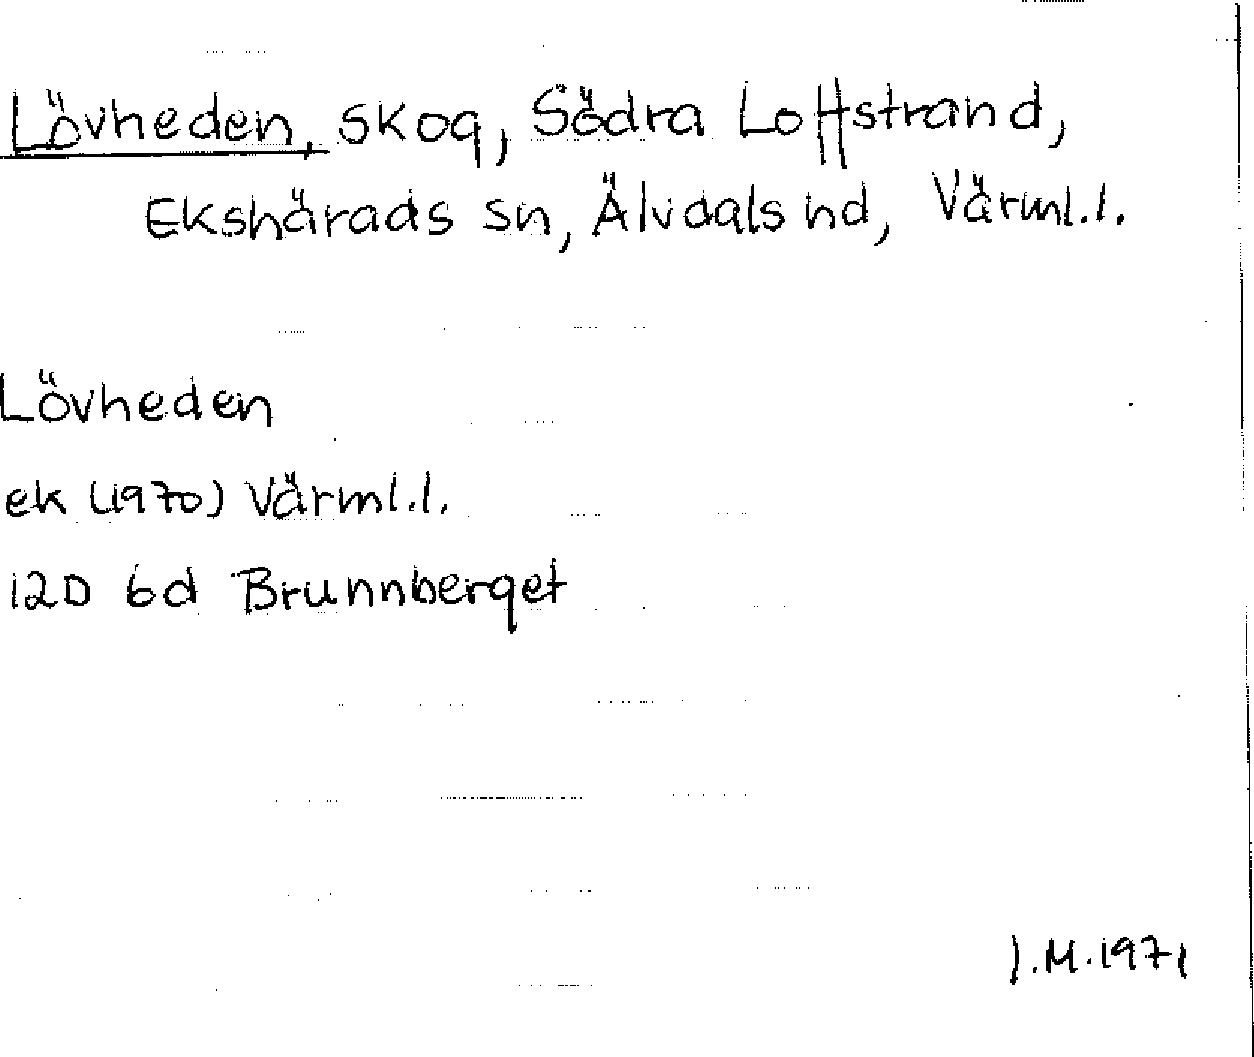 Lövheden, skog, Södra Loffstrand,
Ekshärads sn, Älvdals hd, Värml.l.
Lövheden
ek (1970) Värml.l.
12D 6d Brunnberget
J.M.1971